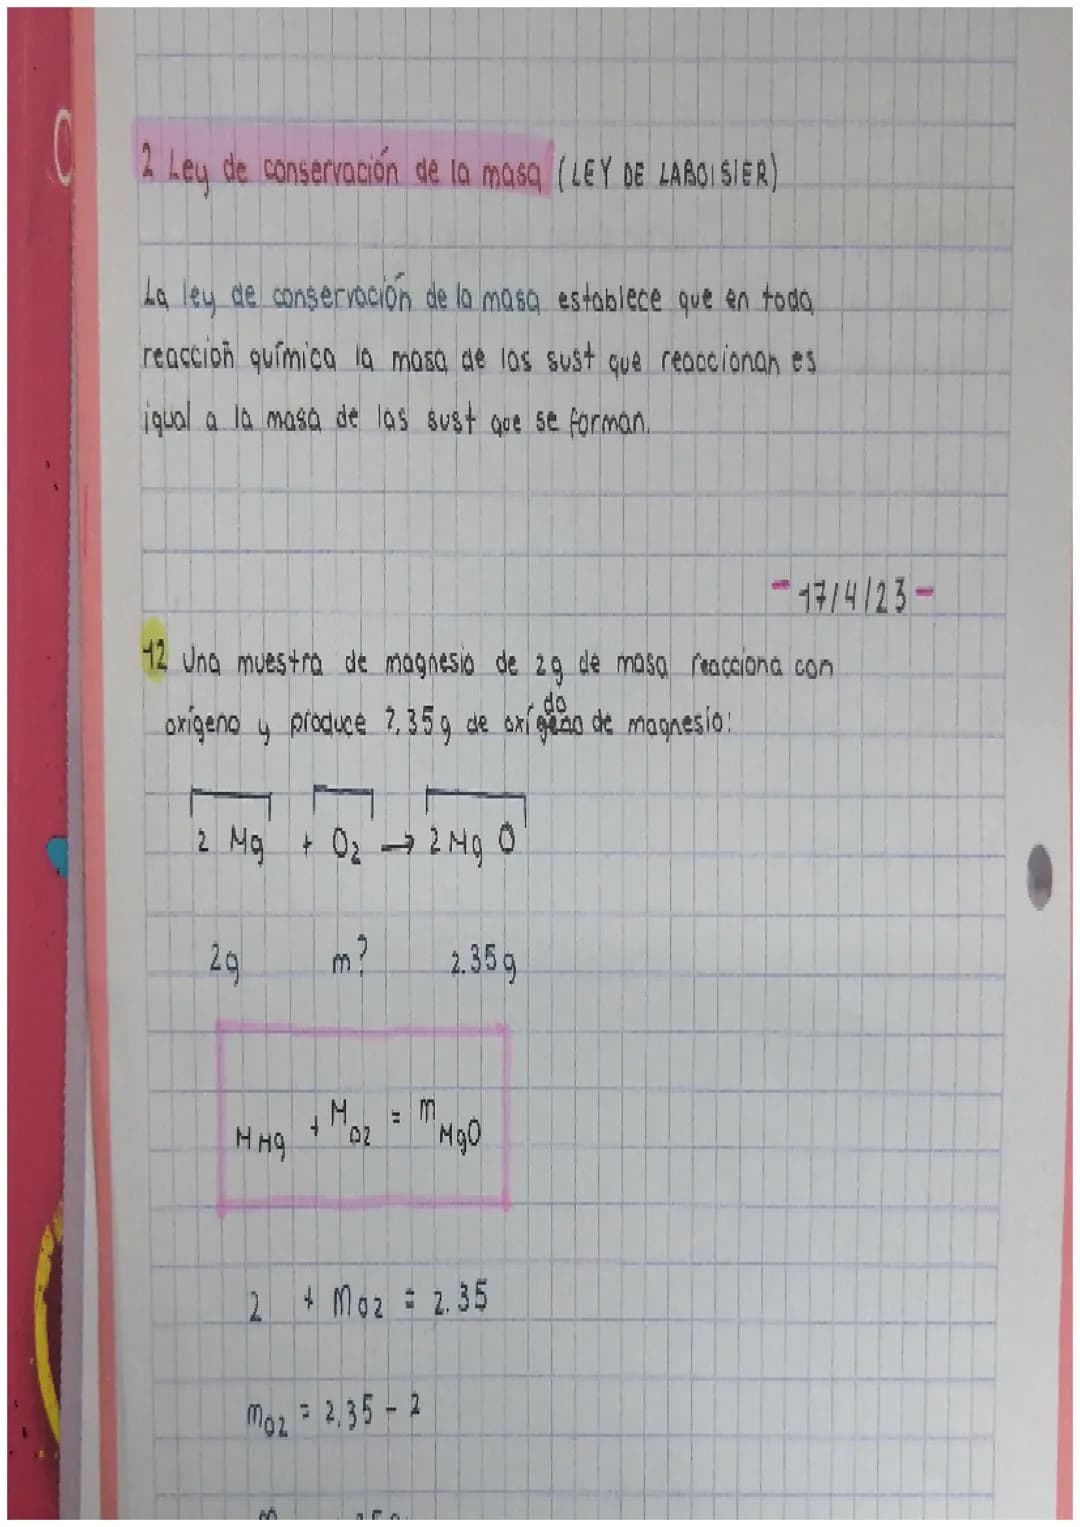 2 Ley de conservación de la masa (LEY DE LABOISIER)
La ley de conservación de la masa establece que en toda
reacción química la masa de las sust que reaccionan es
igual a la masa de las sust que se forman.
- 17/4/23 -
12 Una muestra de magnesio de 2g de masa reacciona con
oxígeno y produce 2,35g de oxígeno do de magnesio:
2 Mg + O2 → 2 Mg O
2g m? 2.35g
M Mg + M O2 = m MgO
2 + mO2 = 2.35
mO2 = 2,35 - 2